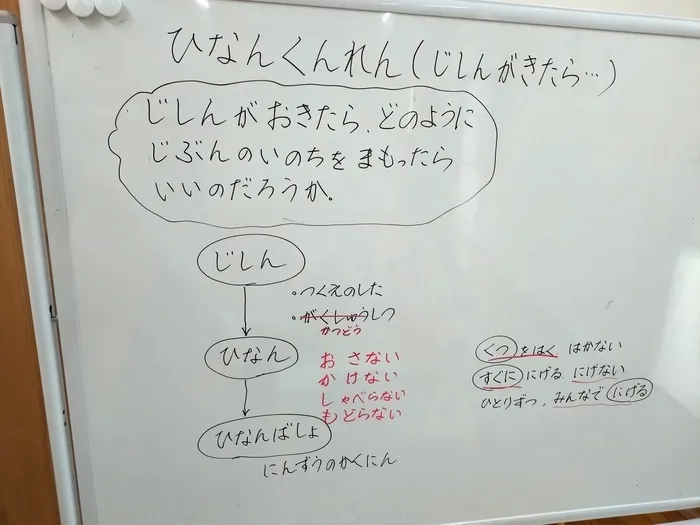 ひなんくんれん(じしんがきたら…)
じしんが おきたら、どのように
じぶんのいのちを まもったら
いいのだろうか。
じしん
・つくえのした
・がくしゅうしつ
かつどう
ひなん
おさない
かけない
しゃべらない
もどらない
ひなんばしょ
にんずうのかくにん
くつをはく はかない
すぐににげる、にげない
ひとりずつ、みんなでにげる